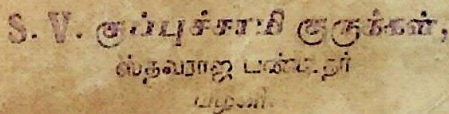 S. V. குப்புச்சாமி குருக்கள்,
ஸ்தவராஜ பண்டிதர்
பழனி.